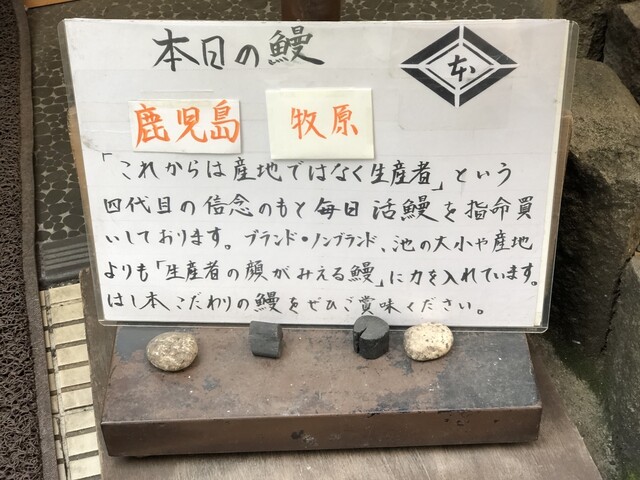 本日の鰻
本
鹿児島 牧原
「これからは産地ではなく生産者」という
四代目の信念のもと毎日活鰻を指命買
いしております。ブランド・ノンブランド、池の大小や産地
よりも「生産者の顔がみえる鰻」に力を入れています。
はし本こだわりの鰻をぜひご賞味ください。